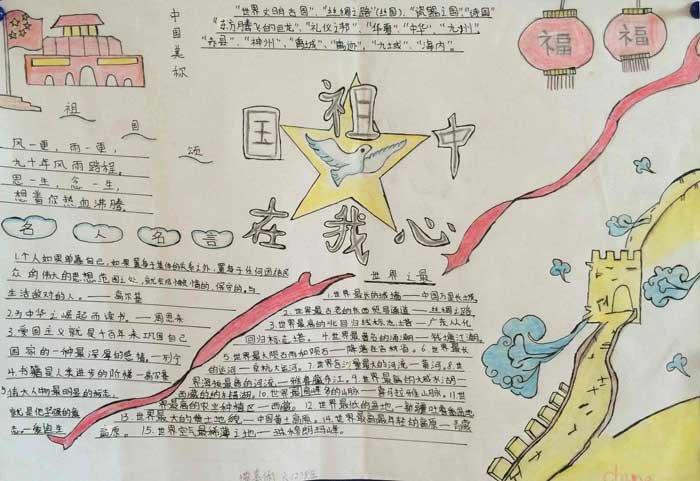 中国美称
"世界文明古国", "丝绸之路(丝国)", "瓷器之国", "诗国"
"东方腾飞的巨龙", "礼仪之邦", "华夏", "中华", "九州",
"赤县", "神州", "禹域", "禹迹", "九域", "海内"。
福
福
祖国颂
风一更，雨一更，
九十年风雨路程。
思一生，念一生，
想着你热血沸腾
祖国在我心中
名人名言
1.个人如果单靠自己，如果置身于集体的关系之外，置身于任何团结民
众的伟大的思想范围之外，就会成为怠惰的、保守的、与
生活敌对的人。——高尔基
2.为中华之崛起而读书。——周恩来
3.爱国主义就是千百年来巩固自己
国家的一种最深厚的感情。——列宁
4.书籍是人类进步的阶梯——高尔基
5.伟大人物最明显的标志，
就是他坚强的意
志。—爱迪生
世界之最
1.世界最长的城墙——中国万里长城。
2.世界最古老的东西贸易通道——丝绸之路。
3.世界最高的北回归线标志塔——广东从化
回归标志塔。4.世界最著名的涌潮——钱塘江潮。
5.世界最大陨石雨和陨石——降落在吉林省。6.世界最长
的运河——京杭大运河。7.世界含沙量最大的河流——黄河。8.世
界海拔最高的河流——雅鲁藏布江。9.世界最高的大咸水湖—
西藏的纳木错湖。10.世界最高峰多的山脉——喜马拉雅山脉。11.世
界最高的农业种植区——西藏。12.世界最低的盆地—新疆吐鲁番盆地
13.世界最大的黄土地貌——中国黄土高原。14.世界最高最年轻的高原—青藏
高原。15.世界空气最稀薄之地——珠穆朗玛峰。
china